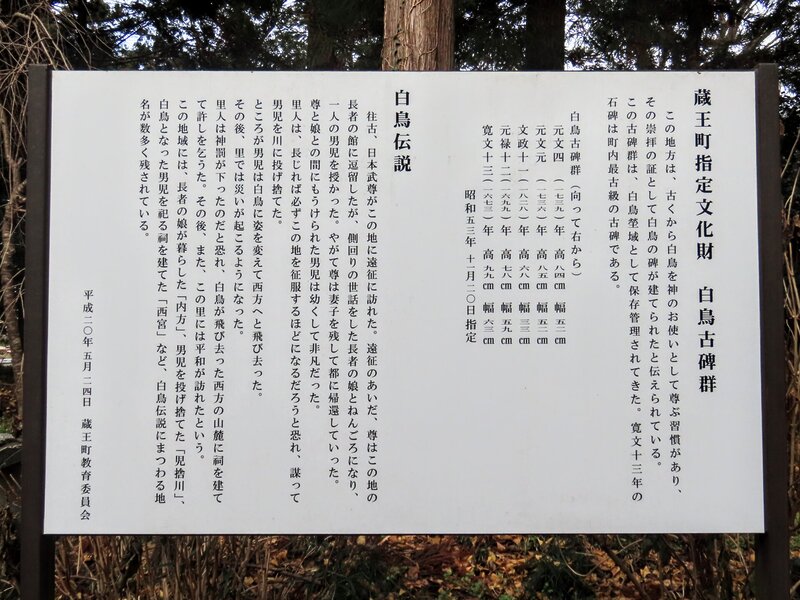 蔵王町指定文化財　白鳥古碑群
この地方は、古くから白鳥を神のお使いとして尊ぶ習慣があり、
その崇拝の証として白鳥の碑が建てられたと伝えられている。
この古碑群は、白鳥塋域として保存管理されてきた。寛文十三年の
石碑は町内最古級の古碑である。
白鳥古碑群（向って右から）
元文四（一七三九）年　高　八四㎝　幅　五二㎝
元文元（一七三六）年　高　八五㎝　幅　五二㎝
文政十一（一八二八）年　高　六八㎝　幅　三三㎝
元禄十二（一六九九）年　高　七八㎝　幅　五九㎝
寛文十三（一六七三）年　高　九九㎝　幅　六三㎝
昭和五三年　十一月二〇日指定
白鳥伝説
往古、日本武尊がこの地に遠征に訪れた。遠征のあいだ、尊はこの地の
長者の館に逗留したが、側回りの世話をした長者の娘とねんごろになり、
一人の男児を授かった。やがて尊は妻子を残して都に帰還していった。
尊と娘との間にもうけられた男児は幼くして非凡だった。
里人は、長じれば必ずこの地を征服するほどになるだろうと恐れ、謀って
男児を川に投げ捨てた。
ところが男児は白鳥に姿を変えて西方へと飛び去った。
その後、里では災いが起こるようになった。
里人は神罰が下ったのだと恐れ、白鳥が飛び去った西方の山麓に祠を建て
て許しを乞うた。その後、また、この里には平和が訪れたという。
この地域には、長者の娘が暮らした「内方」、男児を投げ捨てた「児捨川」、
白鳥となった男児を祀る祠を建てた「西宮」など、白鳥伝説にまつわる地
名が数多く残されている。
平成二〇年五月二四日　蔵王町教育委員会